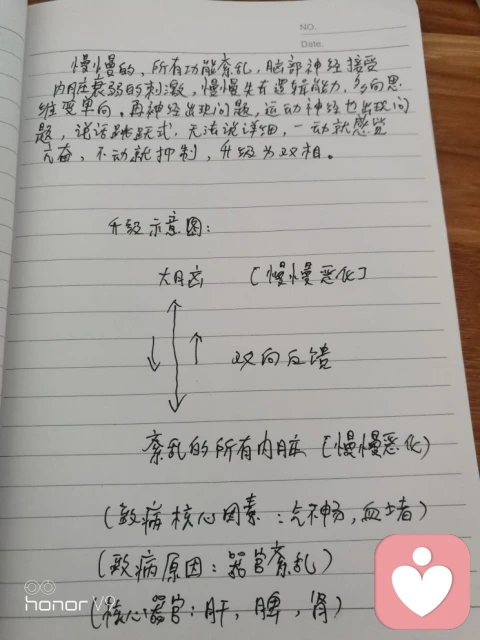 NO.
Date.
慢慢的，所有功能紊乱，脑部神经接受
内脏衰弱的刺激，慢慢失去逻辑能力，多向思
维变单向，再神经出现问题，运动神经也出现问
题，说话跳跃式，无法说详细，一动就感觉
亢奋，不动就抑制，升级为双相。
升级示意图：
大脑 [慢慢恶化]
双向反馈
紊乱的所有内脏 [慢慢恶化)
(致病核心因素：气不畅，血堵)
(致病原因：器官紊乱)
(核心器官：肝，脾，肾)
honor V9